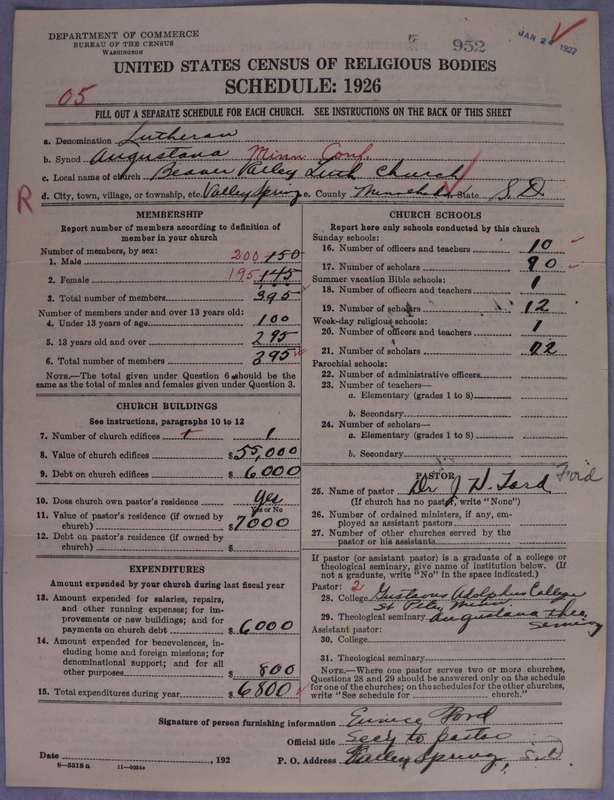 DEPARTMENT OF COMMERCE
BUREAU OF THE CENSUS
WASHINGTON
952
JAN 2 1927
UNITED STATES CENSUS OF RELIGIOUS BODIES
SCHEDULE: 1926
05
FILL OUT A SEPARATE SCHEDULE FOR EACH CHURCH. SEE INSTRUCTIONS ON THE BACK OF THIS SHEET
a. Denomination Lutheran
b. Synod Augustana Minn Conf.
c. Local name of church Beaver Valley Luth Church
R
d. City, town, village, or township, etc. Valley Spring e. County Minnehaha State S. D.
MEMBERSHIP
Report number of members according to definition of
member in your church
Number of members, by sex:
1. Male 200 150
2. Female 195 145
3. Total number of members 395
Number of members under and over 13 years old:
4. Under 13 years of age 100
5. 13 years old and over 295
6. Total number of members 395
NOTE.—The total given under Question 6 should be the
same as the total of males and females given under Question 3.
CHURCH BUILDINGS
See instructions, paragraphs 10 to 12
7. Number of church edifices 1
8. Value of church edifices $55,000
9. Debt on church edifices $6000
10. Does church own pastor's residence yes
Yes or No
11. Value of pastor's residence (if owned by
church) $7000
12. Debt on pastor's residence (if owned by
church) $
EXPENDITURES
Amount expended by your church during last fiscal year
13. Amount expended for salaries, repairs,
and other running expenses; for im-
provements or new buildings; and for
payments on church debt $6000
14. Amount expended for benevolences, in-
cluding home and foreign missions; for
denominational support; and for all
other purposes $800
15. Total expenditures during year $6800
CHURCH SCHOOLS
Report here only schools conducted by this church
Sunday schools:
16. Number of officers and teachers 10
17. Number of scholars 90
Summer vacation Bible schools:
18. Number of officers and teachers 1
19. Number of scholars 12
Week-day religious schools:
20. Number of officers and teachers 1
21. Number of scholars 12
Parochial schools:
22. Number of administrative officers
23. Number of teachers—
a. Elementary (grades 1 to 8)
b. Secondary
24. Number of scholars—
a. Elementary (grades 1 to 8)
b. Secondary
PASTOR
25. Name of pastor Dr J. H. Ford Ford
(If church has no pastor, write "None")
26. Number of ordained ministers, if any, em-
ployed as assistant pastors
27. Number of other churches served by the
pastor or his assistants
If pastor (or assistant pastor) is a graduate of a college or
theological seminary, give name of institution below. (If
not a graduate, write "No" in the space indicated.)
Pastor: 2
28. College Gustavus Adolphus College
St Peter Minn
29. Theological seminary Augustana Theo.
Seminary
Assistant pastor:
30. College
31. Theological seminary
NOTE.—Where one pastor serves two or more churches,
Questions 28 and 29 should be answered only on the schedule
for one of the churches; on the schedules for the other churches,
write "See schedule for church."
Signature of person furnishing information Eunice Ford
Official title Secy to pastor
Date , 192 P. O. Address Valley Spring, S.D.
8-5518a 11-9284